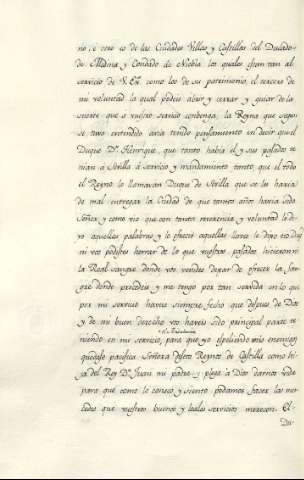 no, e otro es de las Ciudades Villas y Castillos del Ducado
de Medina y Condado de Niebla los quales estan tan al
servicio de V. Exª como los de su patrimonio, el tercero de
mi voluntad la qual podeis abrir y cerrar, y guiar de la
suerte que a vuestro servicio conbenga, la Reyna que segun
se tuvo entendido avia tenido pensamiento en decir que el
Duque Dn. Henrique, que tanto havia el y sus pasados te
nian a Sevilla á servicio y mandamiento tanto, que el todo
el Reyno lo llamavan Duque de Sevilla que se le haria
de mal entregar la Ciudad de que tantos años havia sido
Señor, y como vio que con tanta reverencia y voluntad le di
jo aquellas palabras y le ofreció aquellas llaves le dijo no Duq
ni vos podistes herrar de lo que vuestros pasados hicieron ni
la Real sangre donde vos venides dejar de ofrecer la san
gre donde procedeis y me tengo por tan servida en lo que
por mi servicio haveis siempre fecho que despues de Dios
y de mi buen derecho vos haveis sido principal parte te
niendo en mi servicio, para que yo espeliendo mis enemigos
quedase pacifica Señora destos Reynos de Castilla como hi
ja del Rey Dn. Juan mi padre, y plega á Dios darnos vida
para que como lo conosco y siento podamos facer las mer
cedes que vuestros buenos y leales servicios merecen. El
Du-